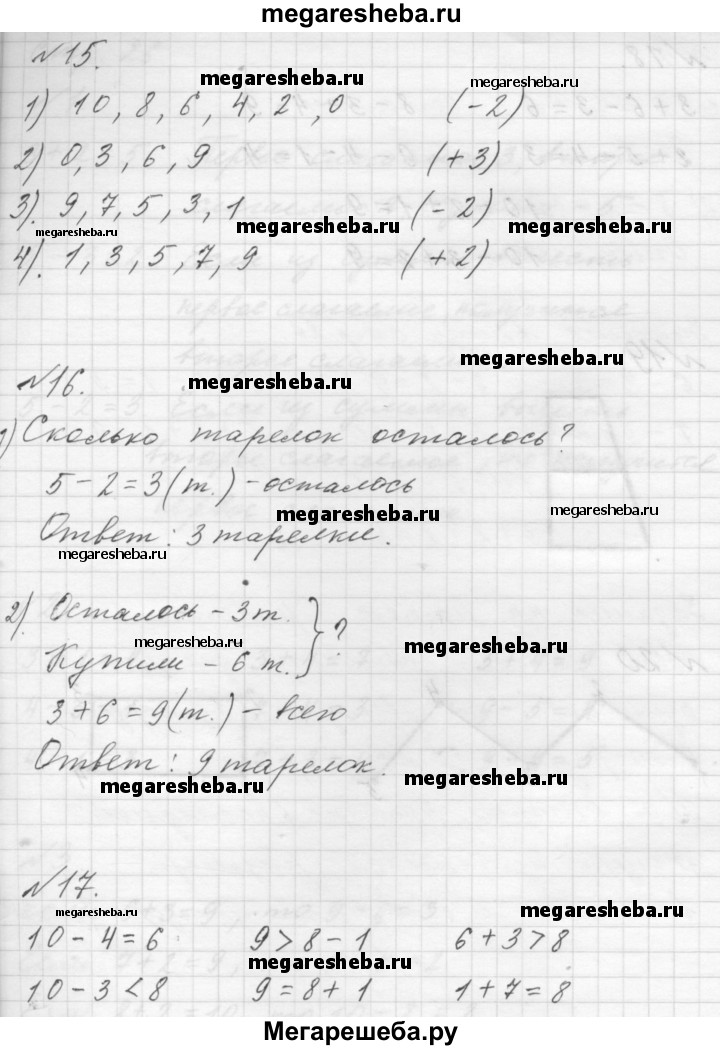 megaresheba.ru
№15.
megaresheba.ru megaresheba.ru
1) 10, 8, 6, 4, 2, 0 (-2)
2) 0, 3, 6, 9 (+3)
3). 9, 7, 5, 3, 1 (-2)
megaresheba.ru megaresheba.ru megaresheba.ru
4). 1, 3, 5, 7, 9 (+2)
megaresheba.ru
№16.
megaresheba.ru
1) Сколько тарелок осталось?
5-2=3(т.) - осталось
megaresheba.ru megaresheba.ru
Ответ: 3 тарелки.
megaresheba.ru
2). Осталось - 3 т. } ?
megaresheba.ru megaresheba.ru
Купили - 6 т.
3+6=9(т.) - всего
Ответ: 9 тарелок.
megaresheba.ru megaresheba.ru
№17.
megaresheba.ru megaresheba.ru
10-4=6 9>8-1 6+3>8
megaresheba.ru
10-3<8 9=8+1 1+7=8
Мегарешеба.ру